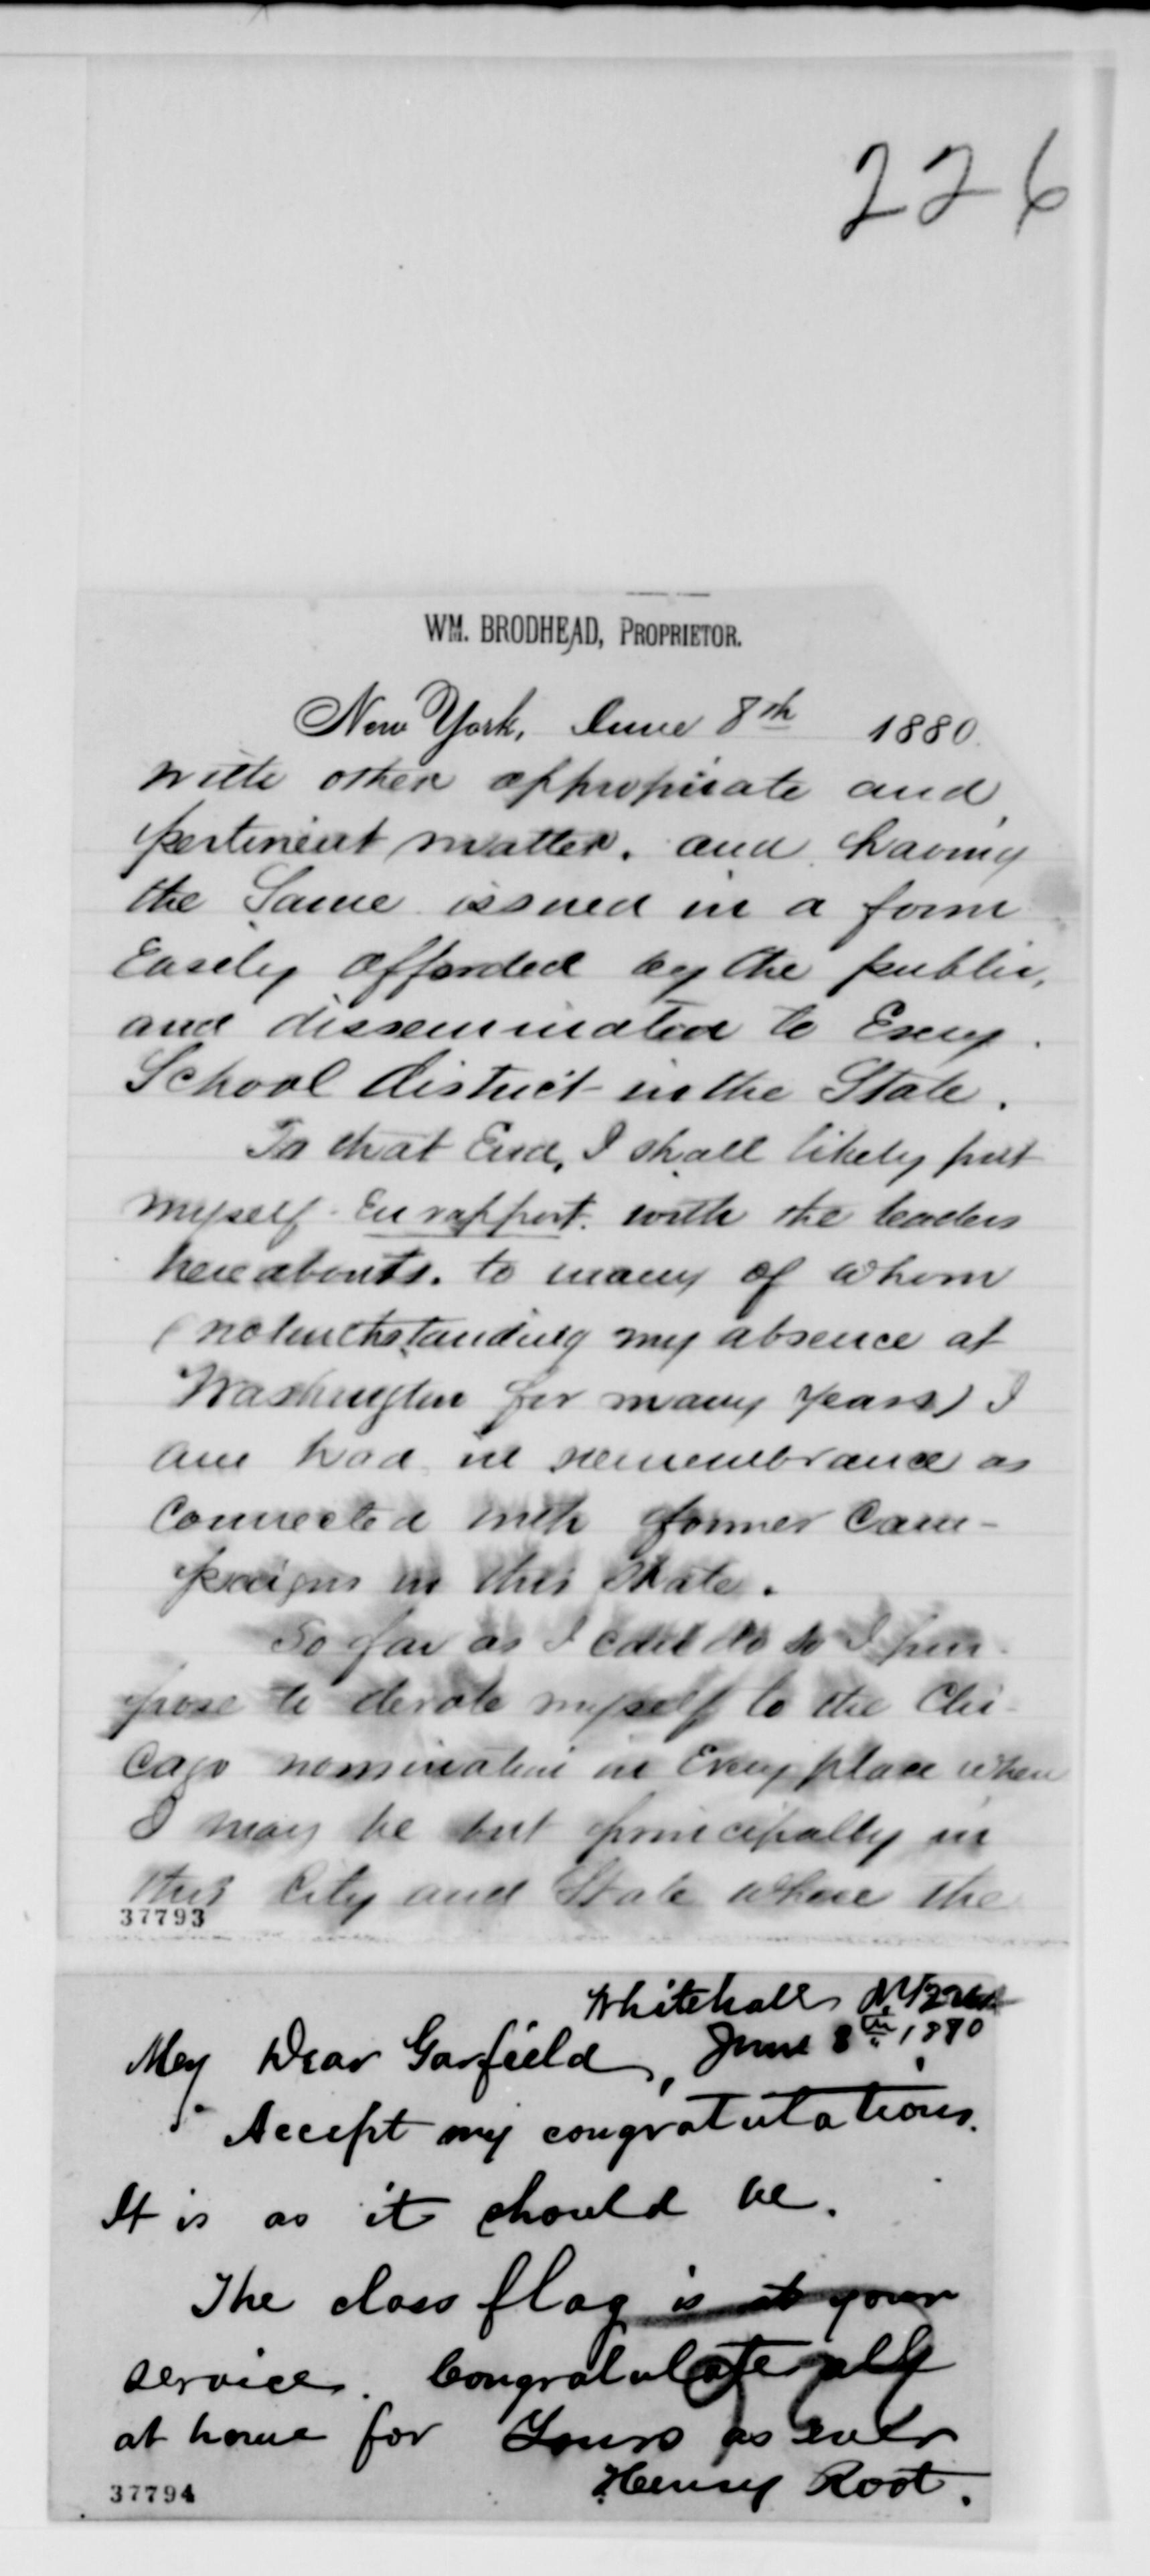 226
WM. BRODHEAD, PROPRIETOR.
New York, June 8th 1880.
with other appropriate and
pertinent matter. and having
the Same issued in a form
Easily afforded by the public,
and disseminated to Every
School district in the State.
To that End, I shall likely put
myself En rapport. with the leaders
hereabouts. to many of whom
(notwithstanding my absence at
Washington for many years) I
am had in remembrance as
Connected with former Cam-
paigns in this State.
So far as I can do so I pur-
pose to devote myself to the Chi-
cago nomination in Every place when
I may be but principally in
this City and State where the
37793
Whitehall N.Y.
June 8th 1880
My Dear Garfield,
Accept my congratulations.
It is as it should be.
The class flag is at your
service. Congratulate all
at home for Yours as ever
Henry Root.
37794